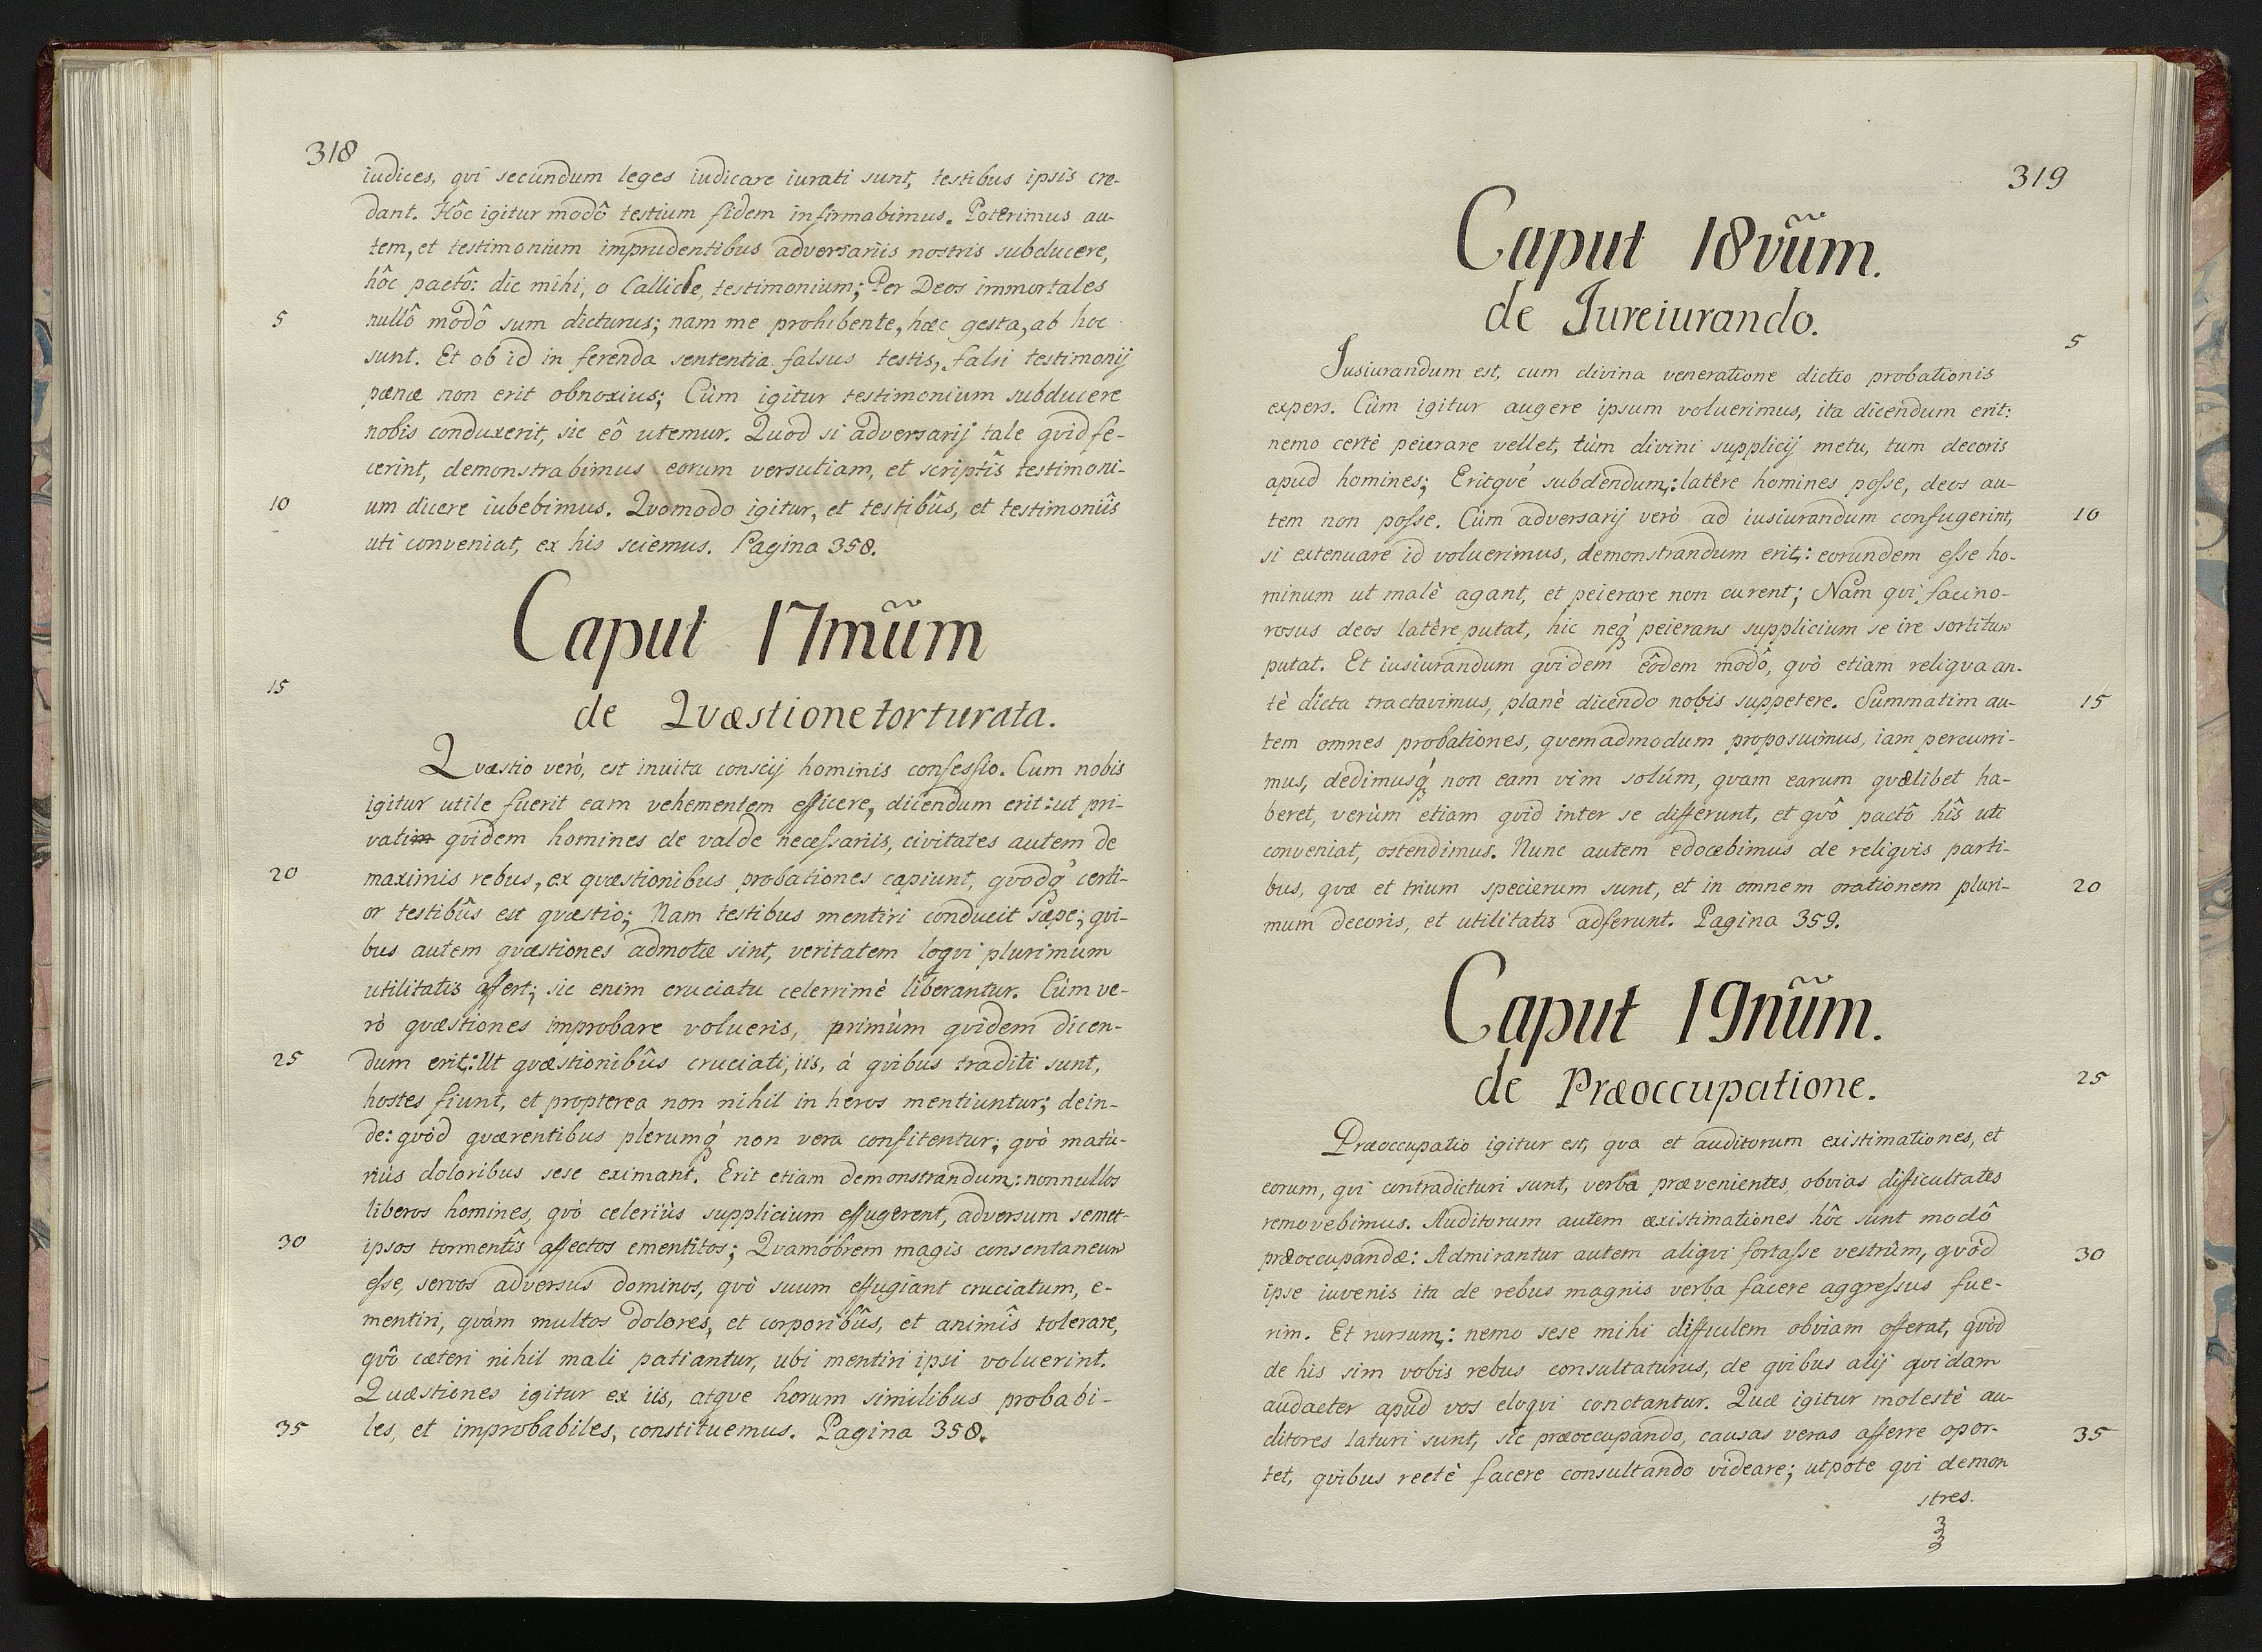 318
iudices, qvi secundum leges iudicare iurati sunt, testibus ipsis cre-
dant. Hôc igitur modô testium fidem infirmabimus. Poterimus au-
tem, et testimonium imprudentibus adversariis nostris subducere,
hôc pactô: dic mihi, o Callicle, testimonium; Per Deos immortales
5 nullô modô sum dicturus; nam me prohibente, hæc gesta, ab hoc
sunt. Et ob id in ferenda sententia falsus testis, falsi testimonij
pœnæ non erit obnoxius; Cùm igitur testimonium subducere
nobis conduxerit, sic eô utemur. Quod si adversarij tale qvid fe-
cerint, demonstrabimus eorum versutiam, et scriptîs testimoni-
10 um dicere iubebimus. Qvomodo igitur, et testibûs, et testimoniîs
uti conveniat, ex his sciemus. Pagina 358.
Caput 17mũm
15
de Qvæstione torturata.
Qvæstio verò, est invita conscij hominis confessio. Cum nobis
igitur utile fuerit eam vehementem efficere, dicendum erit: ut pri-
vatim qvidem homines de valde necessariis, civitates autem de
20 maximis rebus, ex qvæstionibus probationes capiunt, qvodq́ certi-
or testibûs est qvæstio; Nam testibus mentiri conducit sæpe; qvi-
bus autem qvæstiones admotæ sint, veritatem loqvi plurimum
utilitatis affert; sic enim cruciatu celerrimè liberantur. Cùm ve-
rò qvæstiones improbare volueris, primùm qvidem dicen-
25 dum erit: Ut qvæstionibûs cruciati, iis, à qvibus traditi sunt,
hostes fiunt, et propterea non nihil in heros mentiuntur; dein-
de: qvòd qværentibus plerumq́ non vera confitentur; qvò matu-
riùs doloribus sese eximant. Erit etiam demonstrandum: nonnullos
liberos homines, qvò celeriùs supplicium effugerent, adversum semet-
30 ipsos tormentîs affectos ementitos; Qvamobrem magis consentaneum
esse, servos adversus dominos, qvò suum effugiant cruciatum, e-
mentiri, qvàm multos dolores, et corporibûs, et animîs tolerare,
qvô cæteri nihil mali patiantur, ubi mentiri ipsi voluerint.
Quæstiones igitur ex iis, atqve horum similibus probabi-
35 les, et improbabiles, constituemus. Pagina 358.
319
Caput 18vũm.
de Jureiurando.
5
Jusiurandum est, cum divina veneratione dictio probationis
expers. Cùm igitur augere ipsum voluerimus, ita dicendum erit:
nemo certè peierare vellet, tùm divini supplicij metu, tum decoris
apud homines; Eritqvé subdendum: latêre homines posse, deos au-
tem non posse. Cùm adversarij verò ad iusiurandum confugerint, 10
si extenuare id voluerimus, demonstrandum erit: eorundem esse ho-
minum ut malè agant, et peierare non curent; Nam qvi facino-
rosus deos latêre putat, hic neq́ peierans supplicium se ire sortitum
putat. Et iusiurandum qvidem eôdem modô, qvò etiam reliqva an-
tè dicta tractavimus, planè dicendo nobis suppetere. Summatim au- 15
tem omnes probationes, qvemadmodum proposuimus, iam percurri-
mus, dedimusq́ non eam vim solúm, qvam earum qvælibet ha-
beret, verùm etiam qvid inter se differunt, et qvô pactô hîs uti
conveniat, ostendimus. Nunc autem edocebimus de reliqvis parti-
bus, qvæ et trium specierum sunt, et in omnem orationem pluri- 20
mum decoris, et utilitatis adferunt. Pagina 359.
Caput 19nũm.
de Præoccupatione. 25
Præoccupatio igitur est, qva et auditorum existimationes, et
eorum, qvi contradicturi sunt, verba prævenientes, obvias difficultates
removebimus. Auditorum autem æxistimationes hôc sunt modô
præoccupandæ: Admirantur autem aliqvi fortasse vestrùm, qvòd 30
ipse iuvenis ita de rebus magnis verba facere aggressus fue-
rim. Et rursum: nemo sese mihi difficilem obviam offerat, qvòd
de his sim vobis rebus consultaturus, de qvibus alij qvidam
audacter apud vos eloqvi conctantur. Quæ igitur molestè au-
ditores laturi sunt, sic præoccupando, causas veras afferre opor- 35
tet, qvibus rectè facere consultando videare; utpote qvi demon
stres.